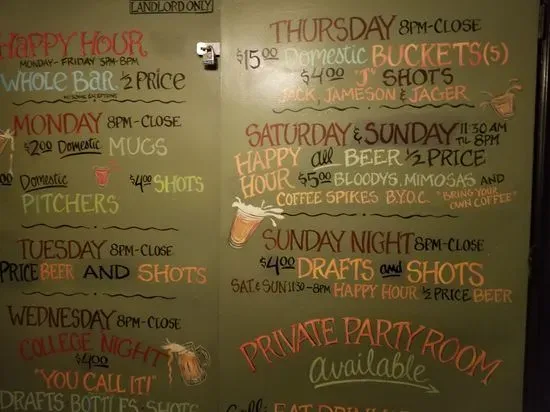 LANDLORD ONLY
HAPPY HOUR
MONDAY - FRIDAY 5PM-8PM
WHOLE BAR ½ PRICE
MONDAY 8PM-CLOSE
$2.00 Domestic MUGS
00 Domestic $4.00 SHOTS
PITCHERS
TUESDAY 8PM-CLOSE
PRICE BEER AND SHOTS
WEDNESDAY 8PM-CLOSE
COLLEGE NIGHT
$4.00
"YOU CALL IT!"
DRAFTS BOTTLES SHOTS
THURSDAY 8PM-CLOSE
$15.00 Domestic BUCKETS(5)
$4.00 "J" SHOTS
JACK, JAMESON & JAGER
SATURDAY & SUNDAY 11:30 AM TIL 8PM
HAPPY all BEER ½ PRICE
HOUR $5.00 BLOODYS, MIMOSAS AND
COFFEE SPIKES B.Y.O.C. "BRING YOUR OWN COFFEE"
SUNDAY NIGHT 8PM-CLOSE
$4.00 DRAFTS and SHOTS
SAT. & SUN 11:30-8PM HAPPY HOUR ½ PRICE BEER
PRIVATE PARTY ROOM
available